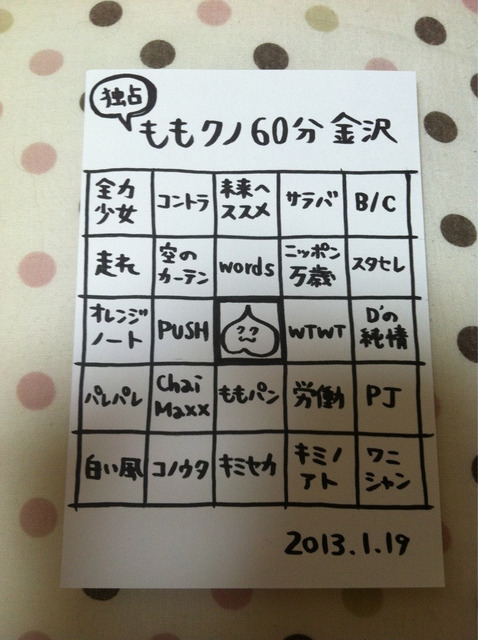 独占
ももクノ60分 金沢
全力少女 コントラ 未来へススメ サラバ B/C
走れ 空のカーテン words ニッポン万歳 スタセレ
オレンジノート PUSH WTWT D'の純情
パレパレ Chai Maxx ももパン 労働 PJ
白い風 コノウタ キミセカ キミノアト ワニシャン
2013.1.19